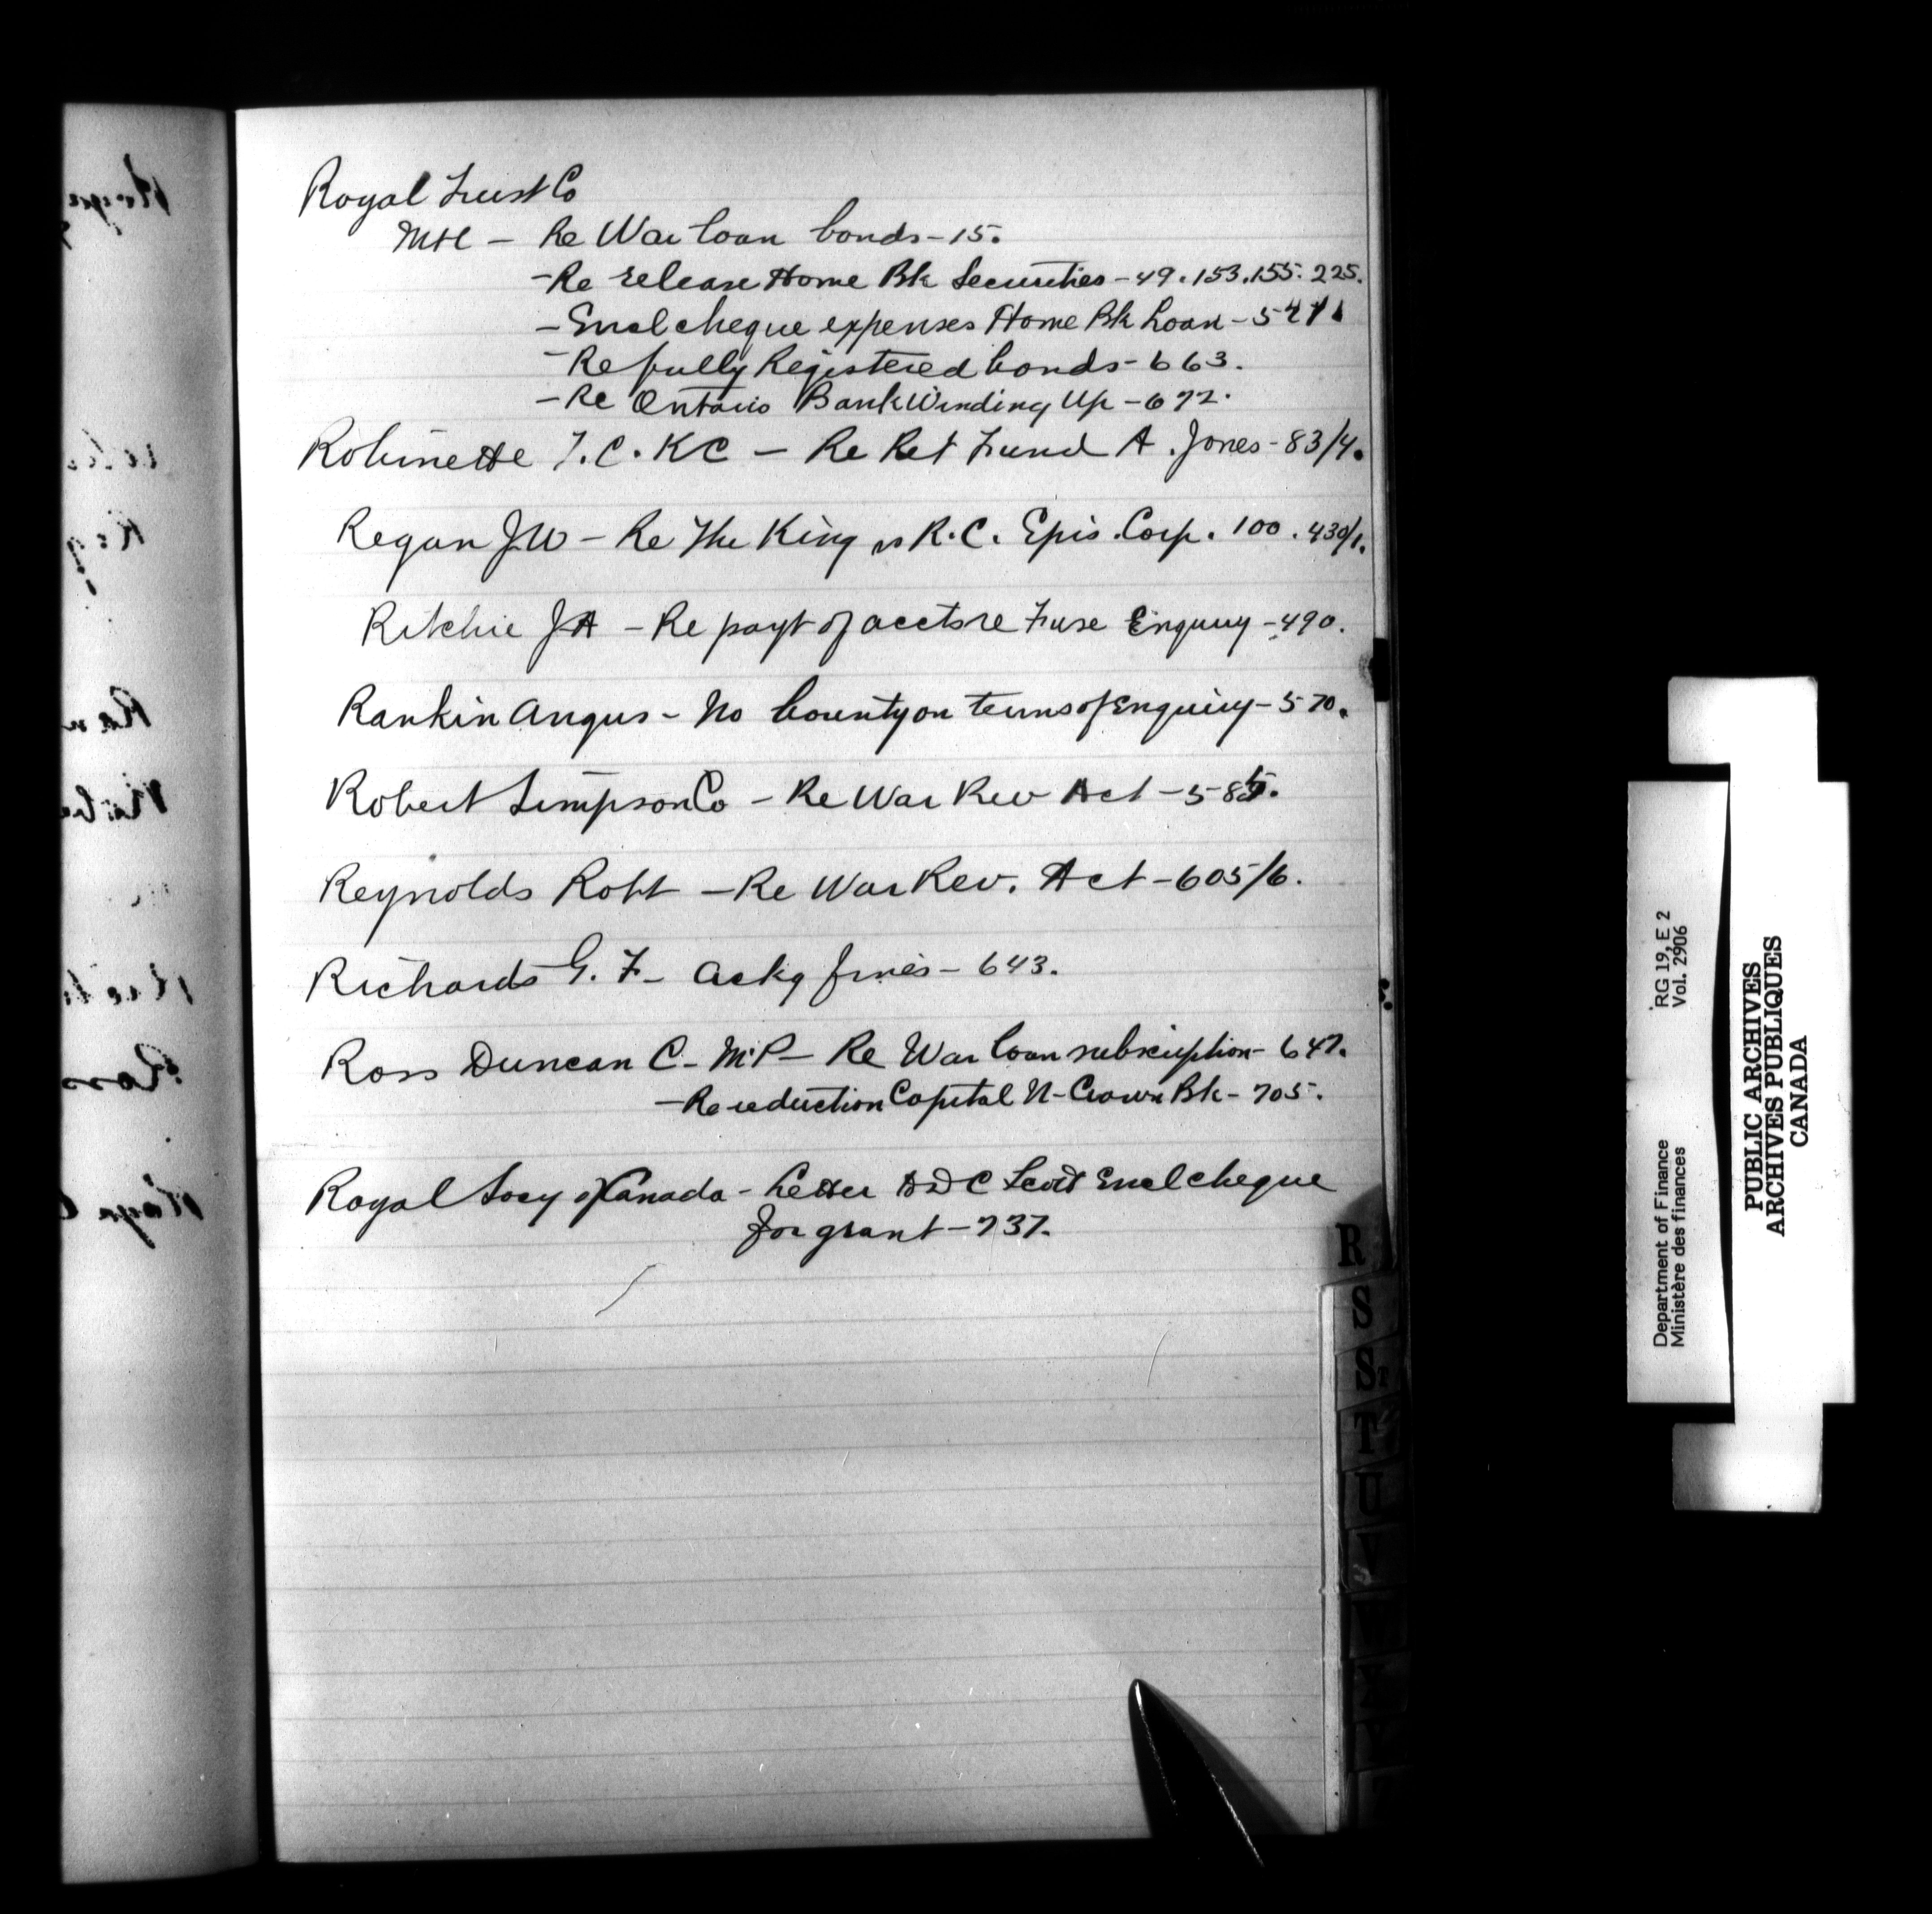 Royal Trust Co
Mtl - Re War loan bonds - 15.
- Re release Home Bk Securities - 49. 153. 155. 225.
- Encl cheque expenses Home Bk Loan -
- Re fully Registered bonds - 663.
- Re Ontario Bank Winding Up - 672.
Robinette T. C. KC - Re Ret Fund A. Jones - 83/4.
Regan J.W - Re The King vs R.C. Epis. Corp. 100. 430/1.
Ritchie J.A - Re payt of accts re Fuse Enquiry - 490.
Rankin Angus - No bounty on terms of Enquiry - 570.
Robert Simpson Co - Re War Rev Act - 585.
Reynolds Robt - Re War Rev. Act - 605/6.
Richards G. F - Ackg fines - 643.
Ross Duncan C. M.P - Re War loan subscription - 647.
- Re reduction Capital N-Crown Bk - 705.
Royal Socy of Canada - Letter to D C Scott Encl cheque
for grant - 737.
R
S
S
T
U
V
Department of Finance
Ministère des finances
RG 19, E 2
Vol. 2906
PUBLIC ARCHIVES
ARCHIVES PUBLIQUES
CANADA